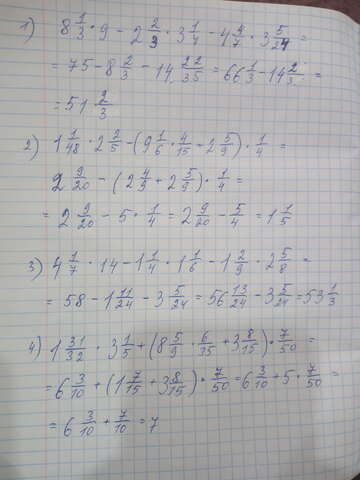 1) 8 1/3 · 9 - 2 2/3 · 3 1/4 - 4 4/7 · 3 5/24 =
= 75 - 8 2/3 - 14 22/35 = 66 1/3 - 14 2/3 =
= 51 2/3
2) 1 1/48 · 2 2/5 - (9 1/6 · 4/15 + 2 5/9) · 1/4 =
2 9/20 - (2 4/9 + 2 5/9) · 1/4 =
= 2 9/20 - 5 · 1/4 = 2 9/20 - 5/4 = 1 1/5
3) 4 1/7 · 14 - 1 1/4 · 1 1/6 - 1 2/9 · 2 5/8 =
= 58 - 1 11/24 - 3 5/24 = 56 13/24 - 3 5/24 = 53 1/3
4) 1 31/32 · 3 1/5 + (8 5/9 · 6/35 + 3 8/15) · 7/50 =
= 6 3/10 + (1 7/15 + 3 8/15) · 7/50 = 6 3/10 + 5 · 7/50 =
= 6 3/10 + 7/10 = 7